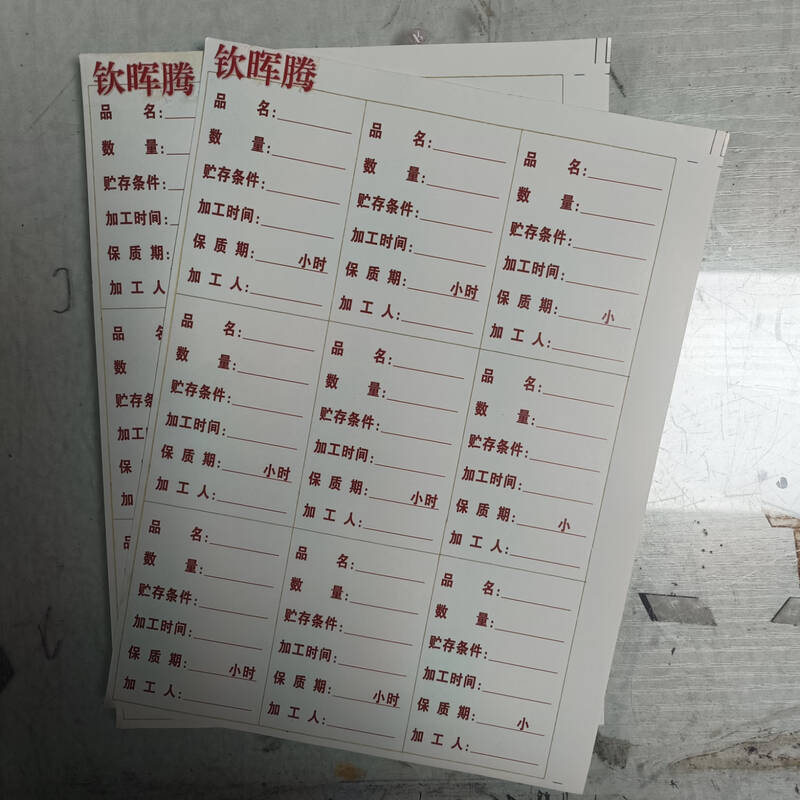 钦晖腾
钦晖腾
品 名:
数 量:
贮存条件:
加工时间:
保 质 期:
加 工 人:
品
数
贮存条
加工
保
加
品
品 名:
数 量:
贮存条件:
加工时间:
保 质 期: 小时
加 工 人:
品 名:
数 量:
贮存条件:
加工时间:
保 质 期: 小时
加 工 人:
品 名:
数 量:
贮存条件:
加工时间:
保 质 期: 小
加 工 人:
品 名:
数 量:
贮存条件:
加工时间:
保 质 期: 小时
加 工 人:
品 名:
数 量:
贮存条件:
加工时间:
保 质 期: 小时
加 工 人:
品 名:
数 量:
贮存条件:
加工时间:
保 质 期: 小
加 工 人:
品 名:
数 量:
贮存条件:
加工时间:
保 质 期: 小时
加 工 人:
品 名:
数 量:
贮存条件:
加工时间:
保 质 期: 小时
加 工 人:
品 名:
数 量:
贮存条件:
加工时间:
保 质 期: 小
加 工 人: